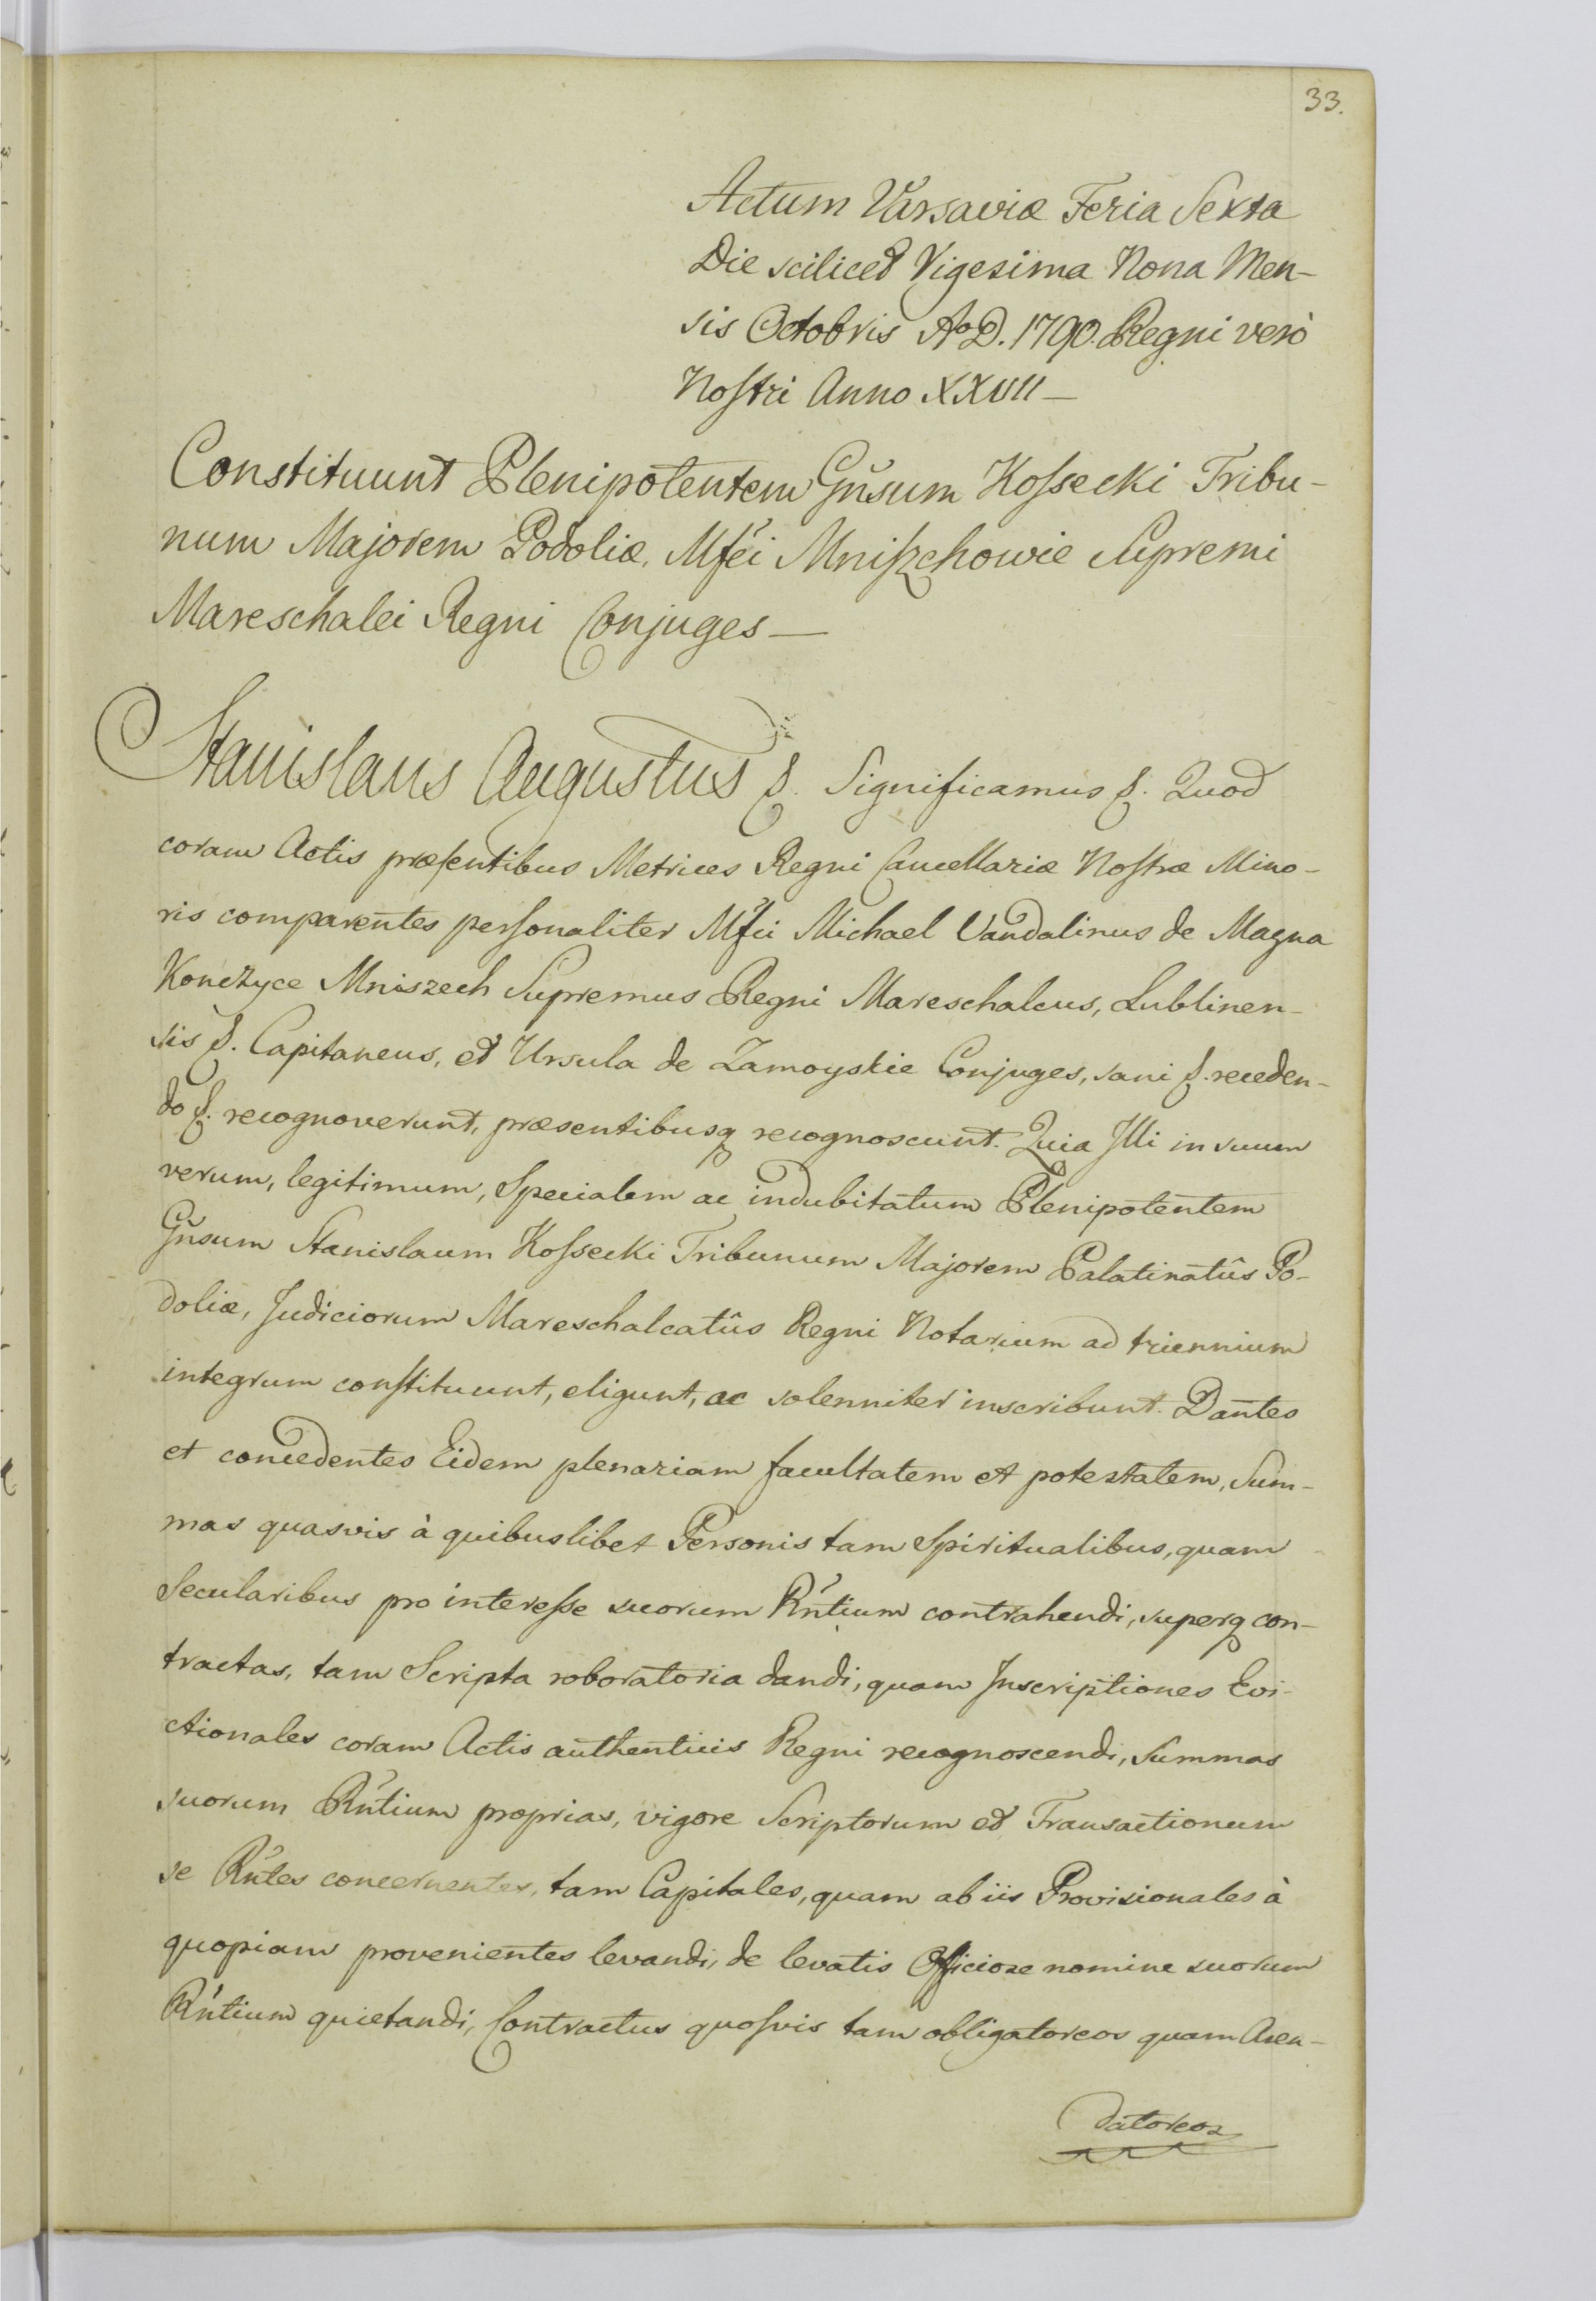 33.
Actum Varsaviæ Feria Sexta
Die scilicet Vigesima Nona Men-
sis Octobris Ao D. 1790. Regni verò
Noſtri Anno XXVII —
Constituunt Plenipotentem Gñsum Koſsecki Tribu-
num Majorem Podoliæ, Mſci Mniſzchowie Supremi
Mareschalci Regni Conjuges —
Stanislaus Augustus &. Significamus &. Quod
coram Actis præſentibus Metrices Regni Cancellariæ Noſtræ Mino-
ris comparentes perſonaliter Mſci Michael Vandalinus de Magna
Kończyce Mniszech Supremus Regni Mareschalcus, Lublinen-
sis &. Capitaneus, et Ursula de Zamoyskie Conjuges, sani &. receden-
do &. recognoverunt, præsentibusq recognoscunt. Quia Illi in suum
verum, legitimum, Specialem ac indubitatum Plenipotentem
Gñsum Stanislaum Koſsecki Tribunum Majorem Palatinatûs Po-
doliæ, Judiciorum Mareschalcatûs Regni Notarium ad triennium
integrum conſtituunt, eligunt, ac solenniter inscribunt. Dantes
et concedentes Eidem plenariam facultatem et potestatem, Sum-
mas quasvis à quibuslibet Personis tam Spiritualibus, quam
Secularibus pro intereſse suorum Rñtium contrahendi, superq con-
tractas, tam Scripta roboratoria dandi, quam Inscriptiones Evi-
ctionales coram Actis authenticis Regni recognoscendi, Summas
suorum Rñtium proprias, vigore Scriptorum et Transactionum
se Rñtes concernentes, tam Capitales, quam ab iis Provisionales à
quopiam provenientes levandi, de levatis Officiose nomine suorum
Rñtium quietandi, Contractus quoſvis tam obligatoreos quam Aren-
datoreos